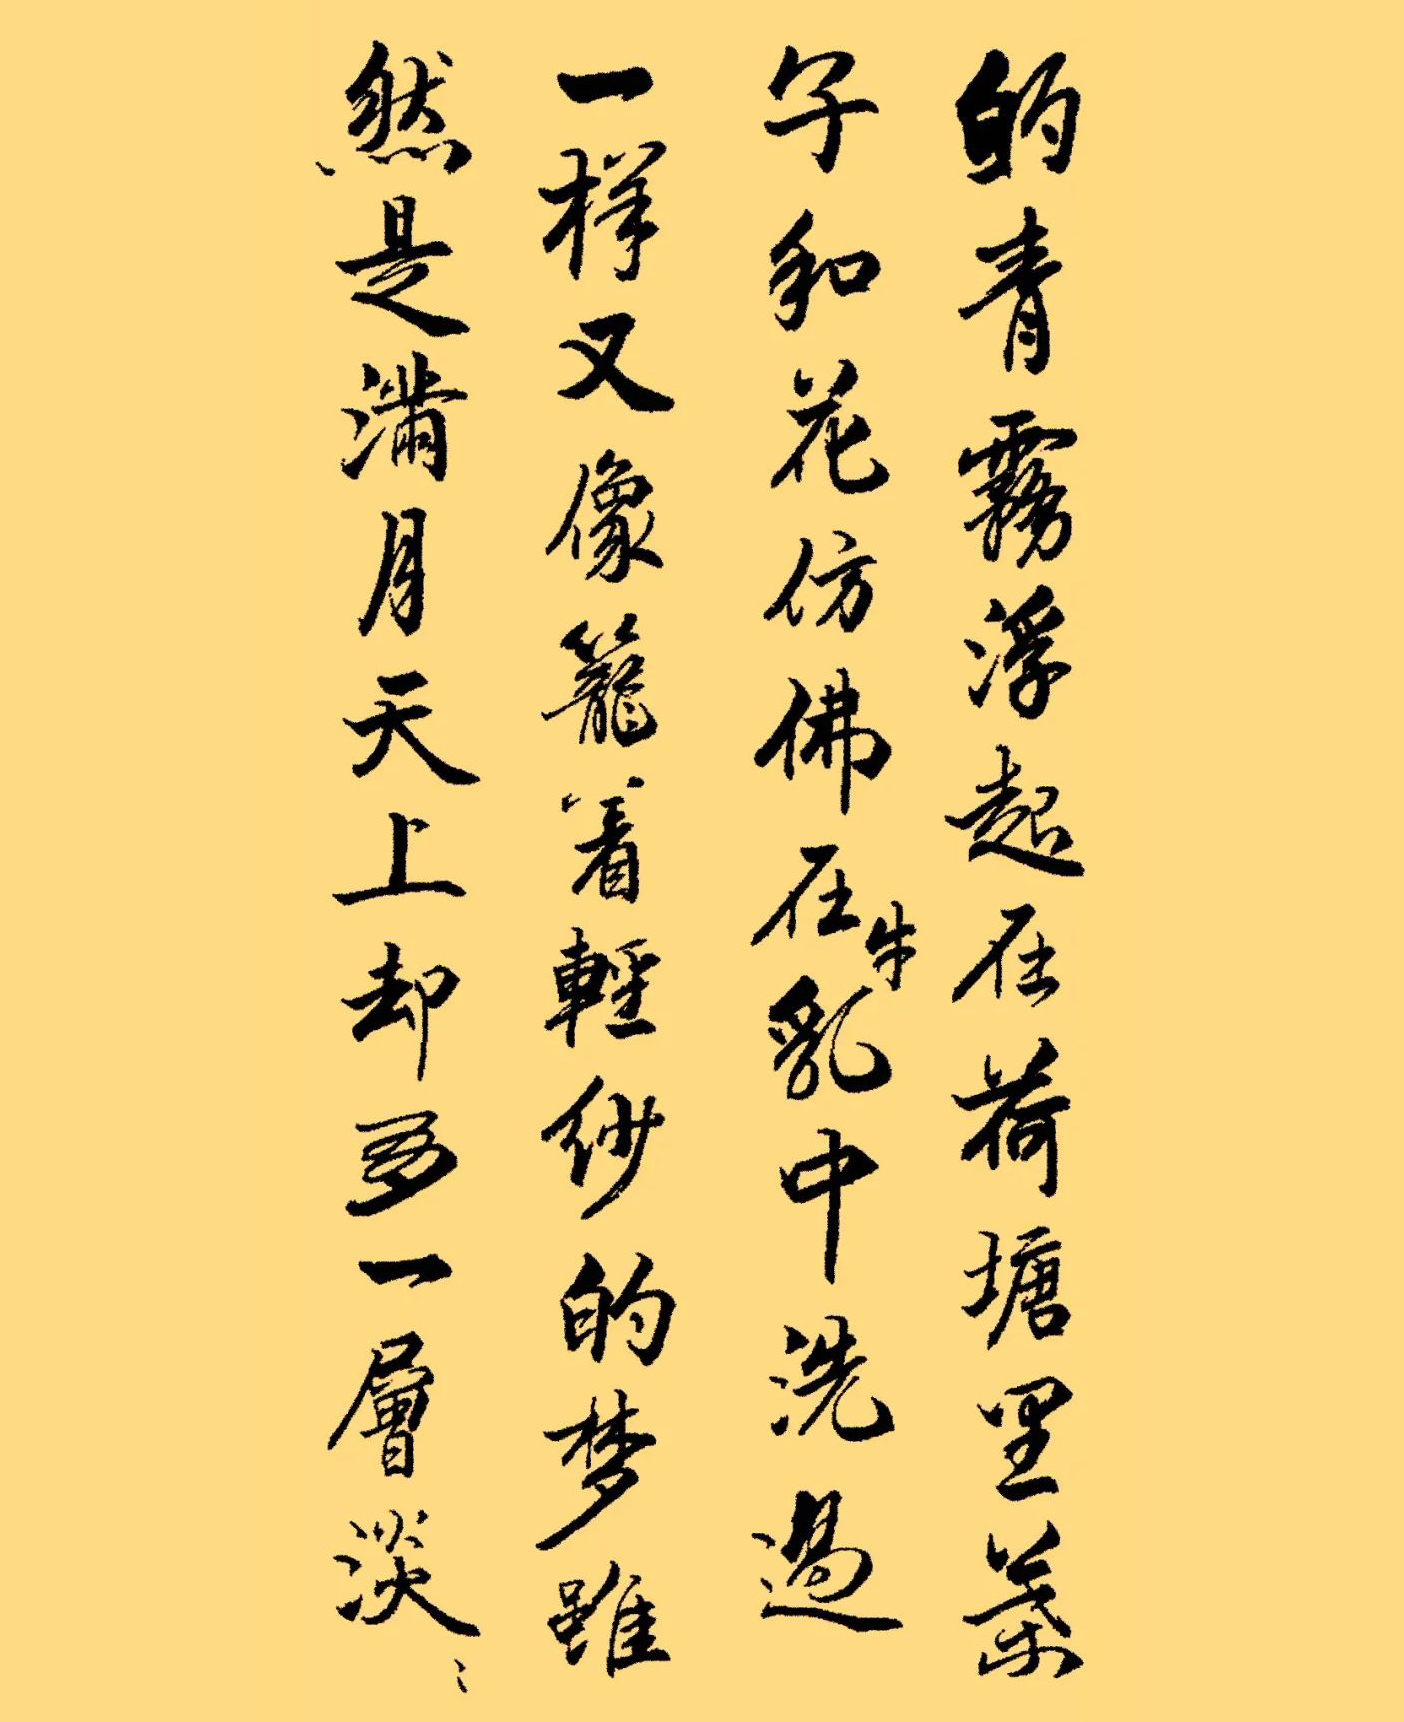 的青霧浮起在荷塘里葉
子和花仿佛在牛乳中洗過
一样又像籠着輕紗的梦雖
然是满月天上却多一層淡々